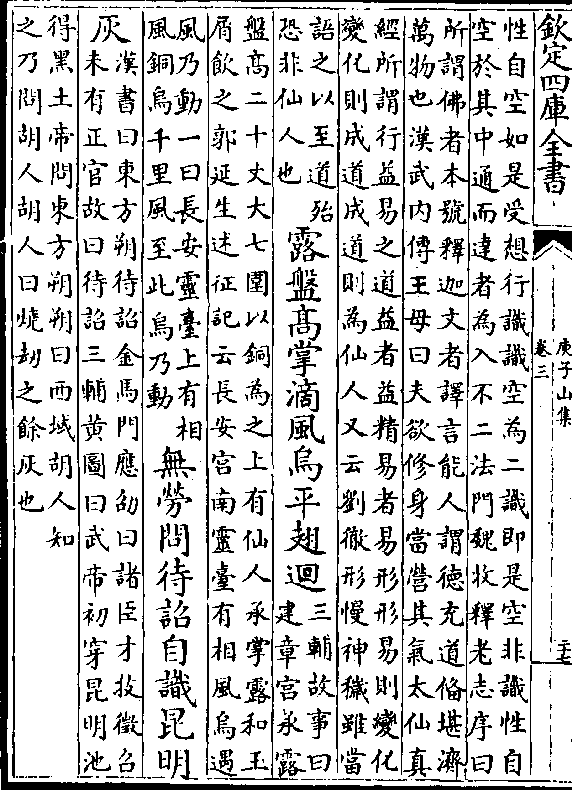 欽定四庫全書
庾子山集
卷三
二十七
性自空如是受想行識識空為二識即是空非識性自
空於其中通而達者為入不二法門魏收釋老志序曰
所謂佛者本號釋迦文者譯言能人謂徳充道備堪濟
萬物也漢武内傳王母曰夫欲修身當營其氣太仙真
經所謂行益易之道益者益精易者易形形易則變化
變化則成道成道則為仙人又云劉徹形慢神穢雖當
語之以至道殆
恐非仙人也
露盤髙掌滴風烏平翅迴
三輔故事曰
建章宫承露
盤髙二十丈大七圍以銅為之上有仙人承掌露和玉
屑飲之郭延生述征記云長安宫南靈臺有相風烏遇
風乃動一曰長安靈臺上有相
風銅烏千里風至此烏乃動
無勞問待詔自識昆明
灰
漢書曰東方朔待詔金馬門應劭曰諸臣才技徵召
未有正官故曰待詔三輔黄圖曰武帝初穿昆明池
得黑土帝問東方朔朔曰西域胡人知
之乃問胡人胡人曰燒刼之餘灰也